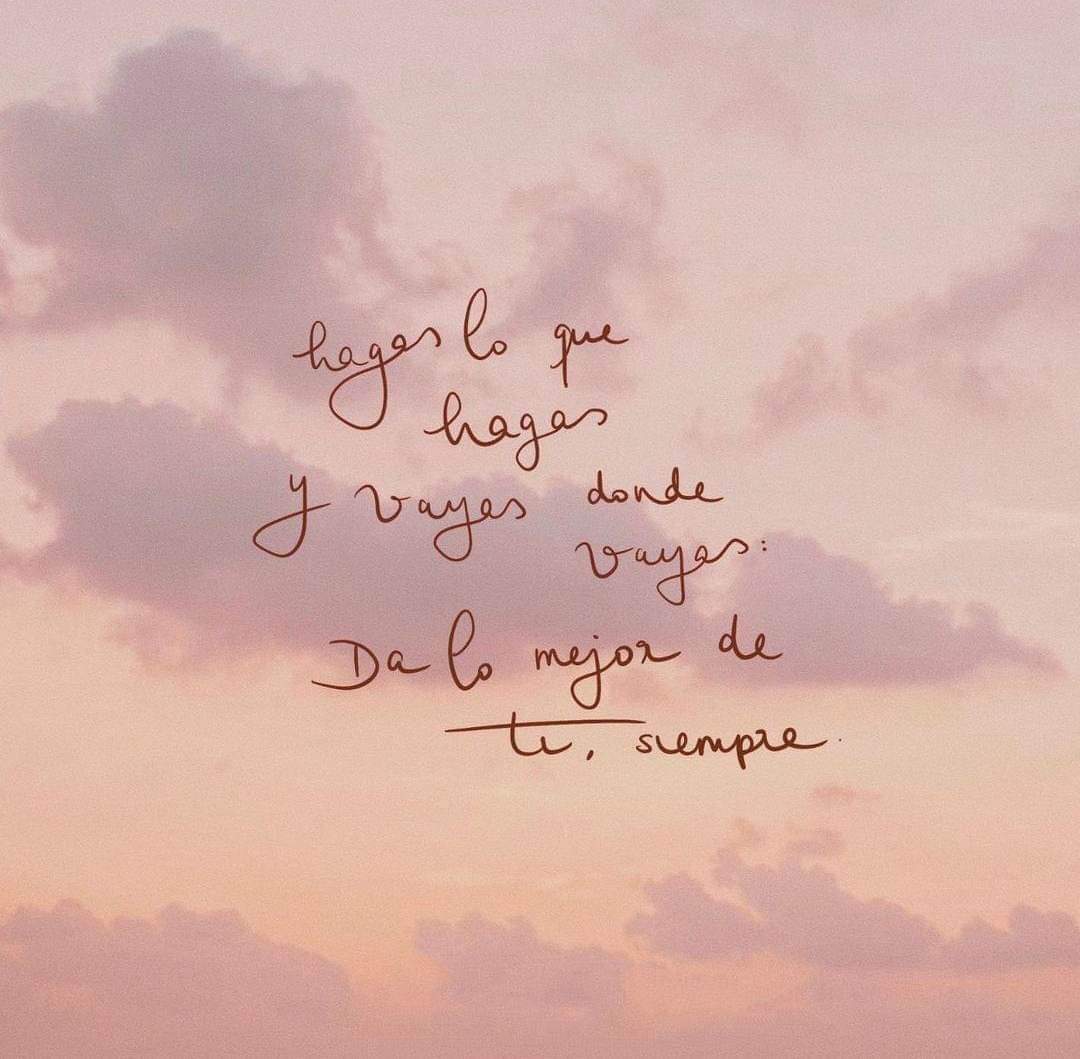 hagas lo que
hagas
y vayas donde
vayas:
Da lo mejor de
ti, siempre.